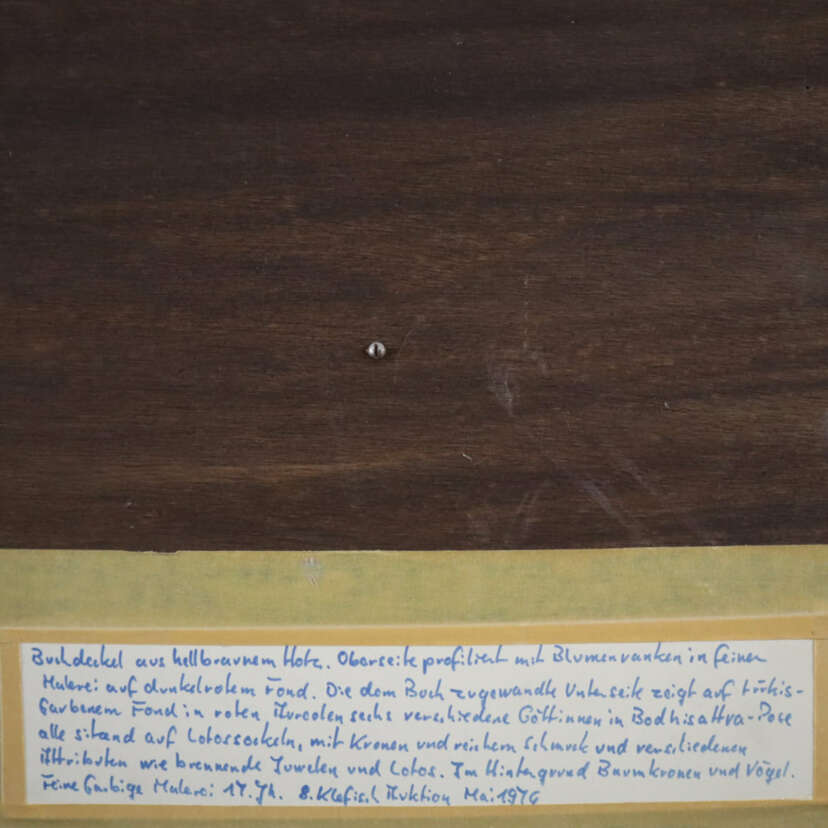 Buchdeckel aus hellbraunem Holz. Oberseite profiliert mit Blumenranken in feiner
Malerei auf dunkelrotem Fond. Die dem Buch zugewandte Unterseite zeigt auf türkis-
farbenem Fond in roten Aureolen sechs verschiedene Göttinnen in Bodhisattva-Pose
alle sitzend auf Lotossockeln, mit Kronen und reichem Schmuck und verschiedenen
Attributen wie brennende Juwelen und Lotos. Im Hintergrund Baumkronen und Vögel.
Feine farbige Malerei 17. Jh. 8. Klefisch Auktion Mai 1976